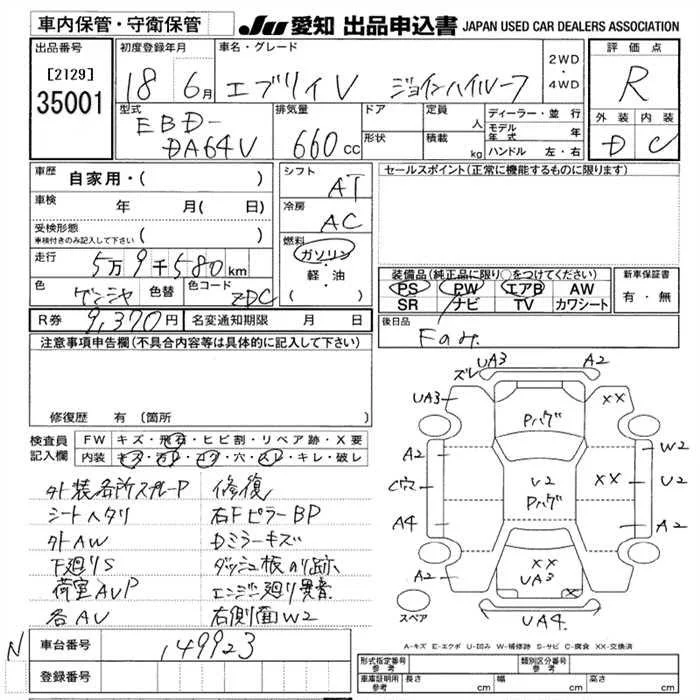 車内保管・守衛保管
JU 愛知 出品申込書 JAPAN USED CAR DEALERS ASSOCIATION
出品番号
[2129]
35001
初度登録年月
18 6月
車名・グレード
エブリィV ジョインハイルーフ
2WD
・
4WD
評価点
R
外装 内装
D C
型式
EBD-
DA64V
排気量
660cc
ドア
形状
定員 人
積載 kg
ディーラー・並行
モデル年式 年
ハンドル 左・右
車歴 自家用・( )
車検 年 月( 日)
受検形態
車検付きのみ記入して下さい ( )
走行 5万9千580km
色 ゲンシャ 色替 色コード ZDC
R券 9,370円 名変通知期限 月 日
シフト
AT
冷房
AC
燃料
ガソリン
・
軽・油
( )
セールスポイント(正常に機能するものに限ります)
装備品(純正品に限り○をつけてください)
PS PW エアB AW
SR ナビ TV カワシート
新車保証書
有・無
後日品
Fのみ
注意事項申告欄(不具合内容等は具体的に記入して下さい)
修復歴 有 (箇所 )
検査員
記入欄
FW キズ・飛石・ヒビ割・リペア跡・X要
内装 キズ・汚れ・コゲ・穴・スレ・キレ・破レ
外装各所スプレーP 修復
シートヘタリ 右FピラーBP
外AW Dミラーキズ
下廻りS ダッシュ板のり跡
荷室AUP エンジン廻り異音
各AU 右側面W2
ズレ UA3 A2
UA3 XX
Pハゲ
A2 W2
Cウス U2 XX U2
Pハゲ
A4 A2
A2 XX
UA3 X
UA4
スペア
A-キズ E-エクボ U-凹み W-補修跡 S-サビ C-腐食 XX-交換済
N 車台番号 149923
登録番号
形式指定番号
参考
類別区分番号
参考
車庫証明用
参考
長さ cm 幅 cm 高さ cm